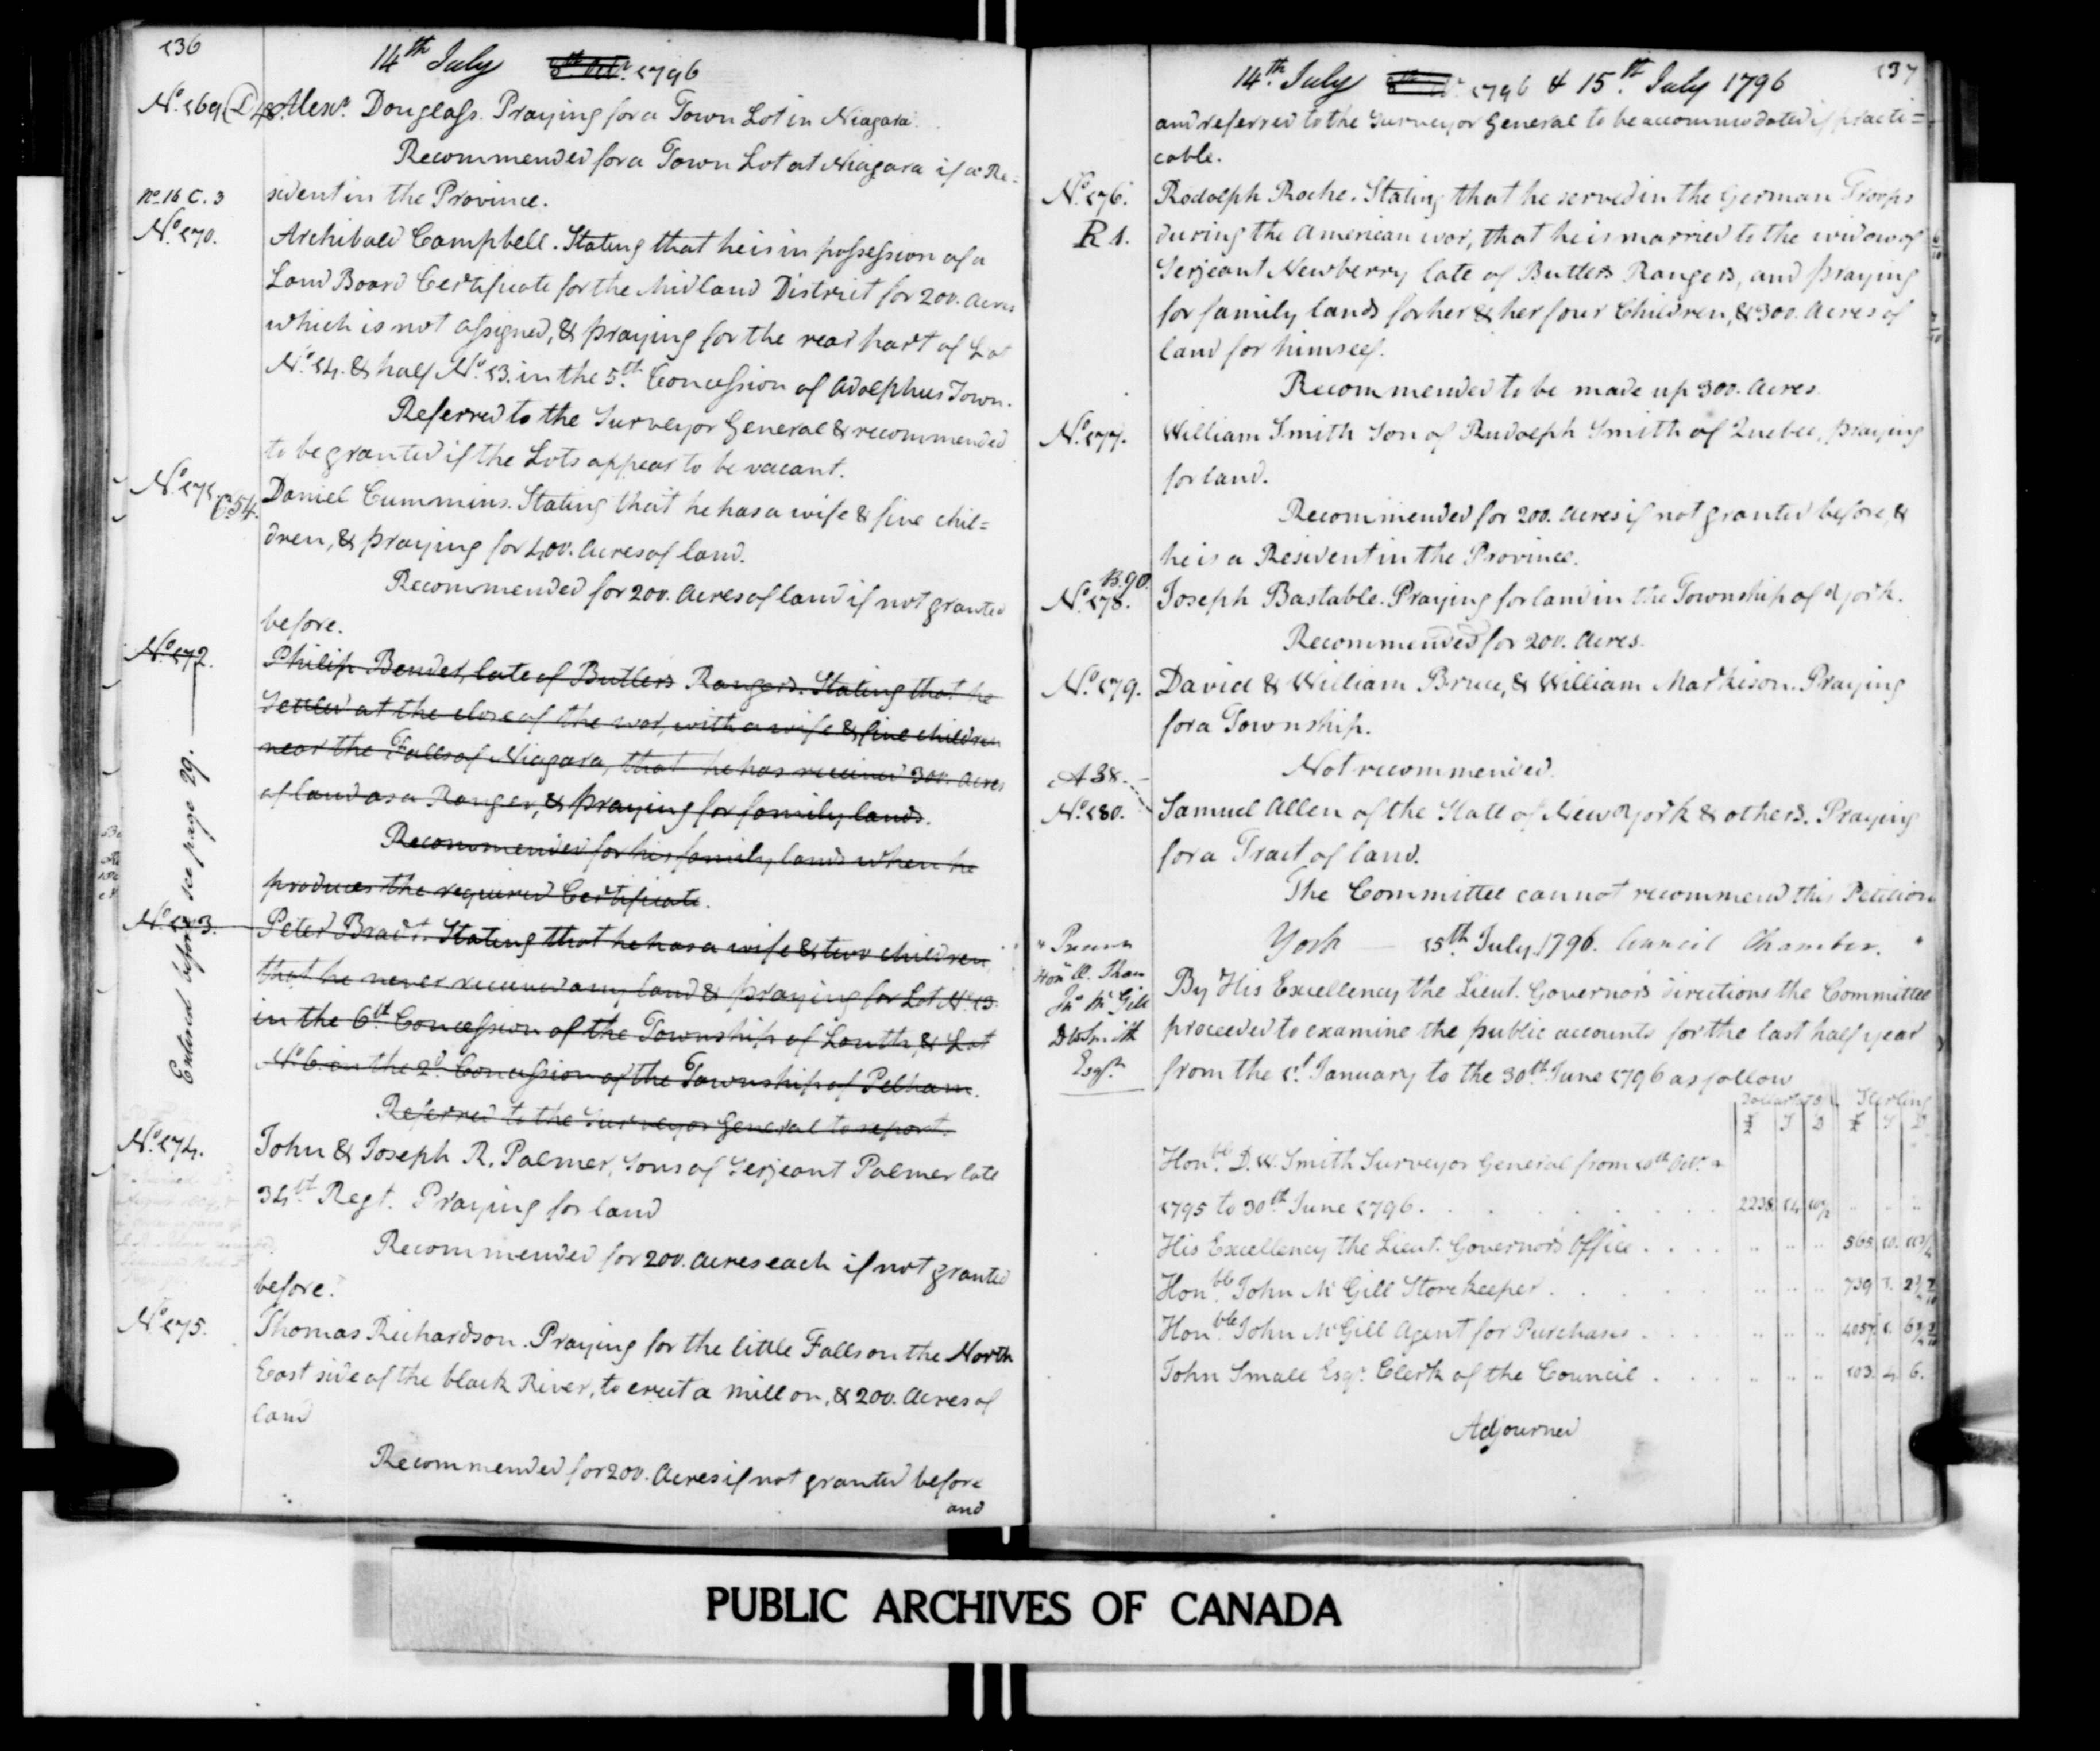 136
14th July 8th Octr. 1796
No. 169 (D 48. Alexr. Douglass. Praying for a Town Lot in Niagara.
Recommended for a Town Lot at Niagara if a Re=
no. 16 C. 3 sident in the Province.
No. 170. Archibald Campbell. Stating that he is in possession of a
Land Board Certificate for the Midland District for 200. Acres
which is not assigned, & praying for the rear part of Lot
No. 14. & half No. 13. in the 5th. Concession of Adolphus Town.
Referred to the Surveyor General & recommended
to be granted if the Lots appear to be vacant.
No. 171. C54. Daniel Cummins. Stating that he has a wife & five chil=
dren, & praying for 400. Acres of land.
Recommended for 200. Acres of land if not granted
before.
No. 172. Philip Bender, late of Butlers Rangers. Stating that he
settled at the close of the war, with a wife & five children
near the Falls of Niagara, that he has received 300. Acres
of land as a Ranger, & praying for family lands.
Recommended for his family lands when he
produces the required Certificate.
Entered before see page 29.
No. 173. Peter Bradt. Stating that he has a wife & two children
that he never received any land & praying for Lot No. 13.
in the 6th. Concession of the Township of Louth, & Lot
No. 6. in the 2d. Concession of the Township of Pelham.
Referred to the Surveyor General to report.
No. 174. John & Joseph R. Palmer, Sons of Serjeant Palmer late
34th. Regt. Praying for land
Recommended for 200. Acres each if not granted
before.
No. 175. Thomas Richardson. Praying for the little Falls on the North
East side of the black River, to erect a mill on, & 200. Acres of
land
Recommended for 200. Acres if not granted before
and
137
14th. July 1796 & 15th. July 1796
and referred to the Surveyor General to be accommodated if practi=
cable.
No. 176. Rodolph Roche. Stating that he served in the German Troops
R 1. during the American war, that he is married to the widow of
Serjeant Newberry late of Butlers Rangers, and praying
for family lands for her & her four Children, & 300. Acres of
land for himself.
Recommended to be made up 300. Acres.
No. 177. William Smith Son of Rudolph Smith of Quebec, praying
for land.
Recommended for 200. Acres if not granted before, &
he is a Resident in the Province.
B. 90.
No. 178. Joseph Bastable. Praying for land in the Township of York.
Recommended for 200. Acres.
No. 179. David & William Bruce, & William Markison. Praying
for a Township.
Not recommended.
A 38.
No. 180. Samuel Allen of the State of New York & others. Praying
for a Tract of land.
The Committee cannot recommend this Petition
York 15th July 1796. Council Chamber.
Present
Honble Æ. Shaw
Jno McGill
D W Smith
Esqrs.
By His Excellency the Lieut. Governor's directions the Committee
proceeded to examine the public accounts for the last half year
from the 1st. January to the 30th. June 1796 as follow
Sterling
£ S D £ S D
Honble. D. W. Smith Surveyor General from 10th Octr.
1795 to 30th June 1796. 2238. 14 10½
His Excellency the Lieut. Governor's Office 565. 10. 11¾
Honble. John McGill Storekeeper
Honble. John McGill Agent for Purchases
John Small Esqr. Clerk of the Council 103. 4. 6.
Adjourned
PUBLIC ARCHIVES OF CANADA